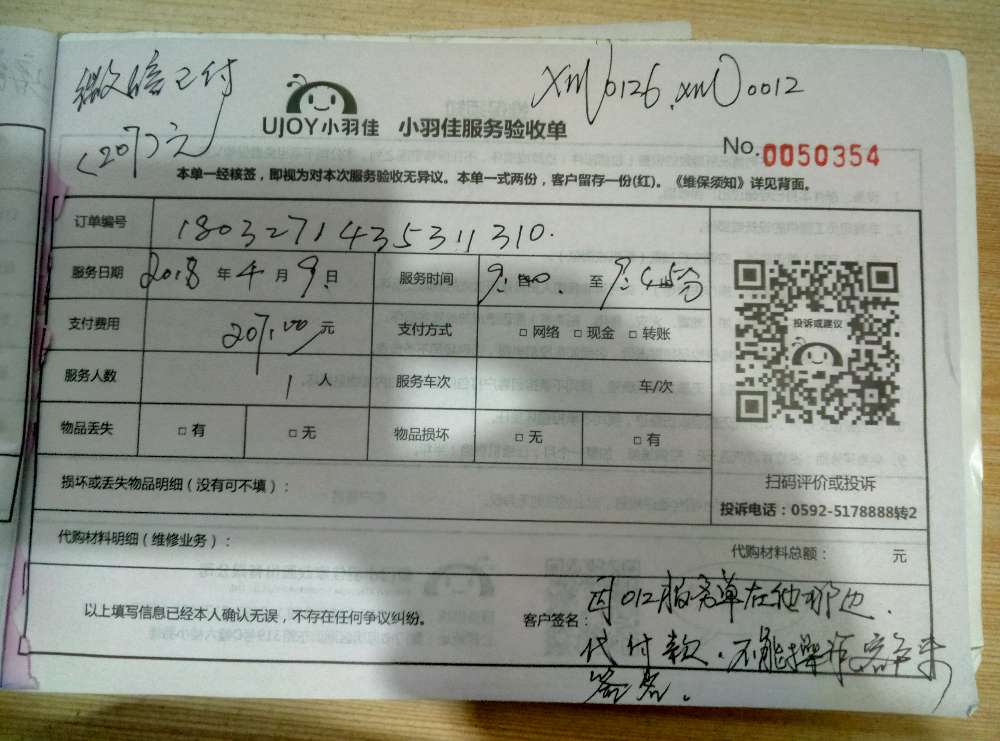 微信已付
(207)元
xm0126.xm00012
UJOY小羽佳 小羽佳服务验收单
No.0050354
本单一经核签，即视为对本次服务验收无异议。本单一式两份，客户留存一份(红)。《维保须知》详见背面。
订单编号 1803271435311310.
服务日期 2018年4月9日 服务时间 9: 至9:45分
支付费用 207.00元 支付方式 □ 网络 □ 现金 □ 转账
服务人数 1人 服务车次 车/次
物品丢失 □ 有 □ 无 物品损坏 □ 无 □ 有
投诉或建议
损坏或丢失物品明细（没有可不填）：
扫码评价或投诉
投诉电话：0592-5178888转2
代购材料明细（维修业务）： 代购材料总额： 元
以上填写信息已经本人确认无误，不存在任何争议纠纷。 客户签名：
因012服务单在他那边.
代付款.不能操作客户来
签名.